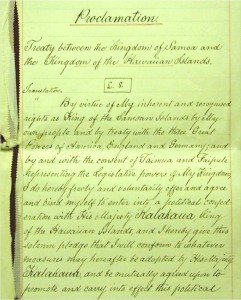 Proclamation.
Treaty between the Kingdom of Samoa and
the Kingdom of the Hawaiian Islands.
Translation
L. S.
By virtue of My inherent and recognized
right as King of the Samoan Islands by My
own people and by treaty with the three Great
Powers of America, England and Germany, and
by and with the consent of Taimua and Faipule
representing the Legislative powers of My Kingdom
I do hereby freely and voluntarily offer and agree
and bind myself to enter into a political confed-
eration with His Majesty Kalakaua King
of the Hawaiian Islands, and I hereby give this
solemn pledge that I will conform to whatever
measures may hereafter be adopted by His Majesty
Kalakaua, and be mutually agreed upon to
promote and carry into effect this political